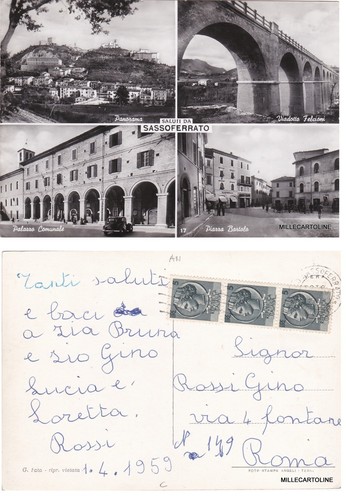 Panorama
Viadotto Felcioni
SALUTI DA
SASSOFERRATO
Palazzo Comunale
17
Piazza Bartolo
MILLECARTOLINE
AN
Tanti saluti
e baci da
a Zia Bruna
e Zio Gino
Lucia e
Loretta
Rossi
1.4.1959
Signor
Rossi Gino
via 4 fontane
N 149
Roma
MILLECARTOLINE